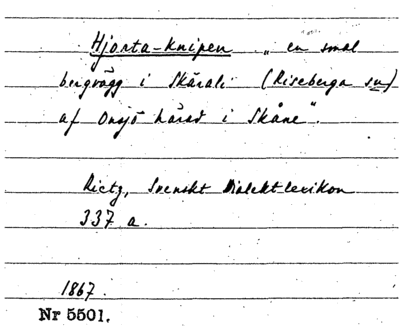 Hjorta-knipen „en smal
bergvägg i Skärali (Riseberga sn)
af Onsjö härad i Skåne".
Rietz, Svenskt Dialektlexikon
337 a.
1867.
Nr 5501.